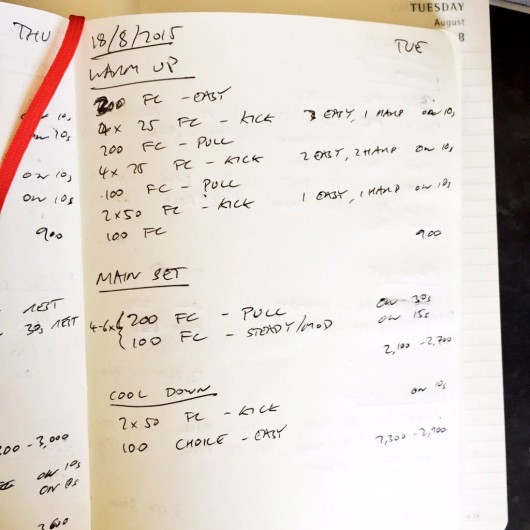 TUESDAY
August
8
THU
18/8/2015
TUE
WARM UP
200 FC - EASY
4 x 25 FC - KICK 3 EASY, 1 HARD ON 10s
200 FC - PULL
4 x 25 FC - KICK 2 EASY, 2 HARD ON 10s
100 FC - PULL
2 x 50 FC - KICK 1 EASY, 1 HARD ON 10s
100 FC
900
MAIN SET
4-6x { 200 FC - PULL ON 30s
{ 100 FC - STEADY/MOD ON 15s
2,100 - 2,700
COOL DOWN
ON 10s
2 x 50 FC - KICK
100 CHOICE - EASY
2,300 - 2,900
ON 10s
ON 10s
ON 10s
ON 10s
900
REST
30s REST
- 3,000
ON 10s